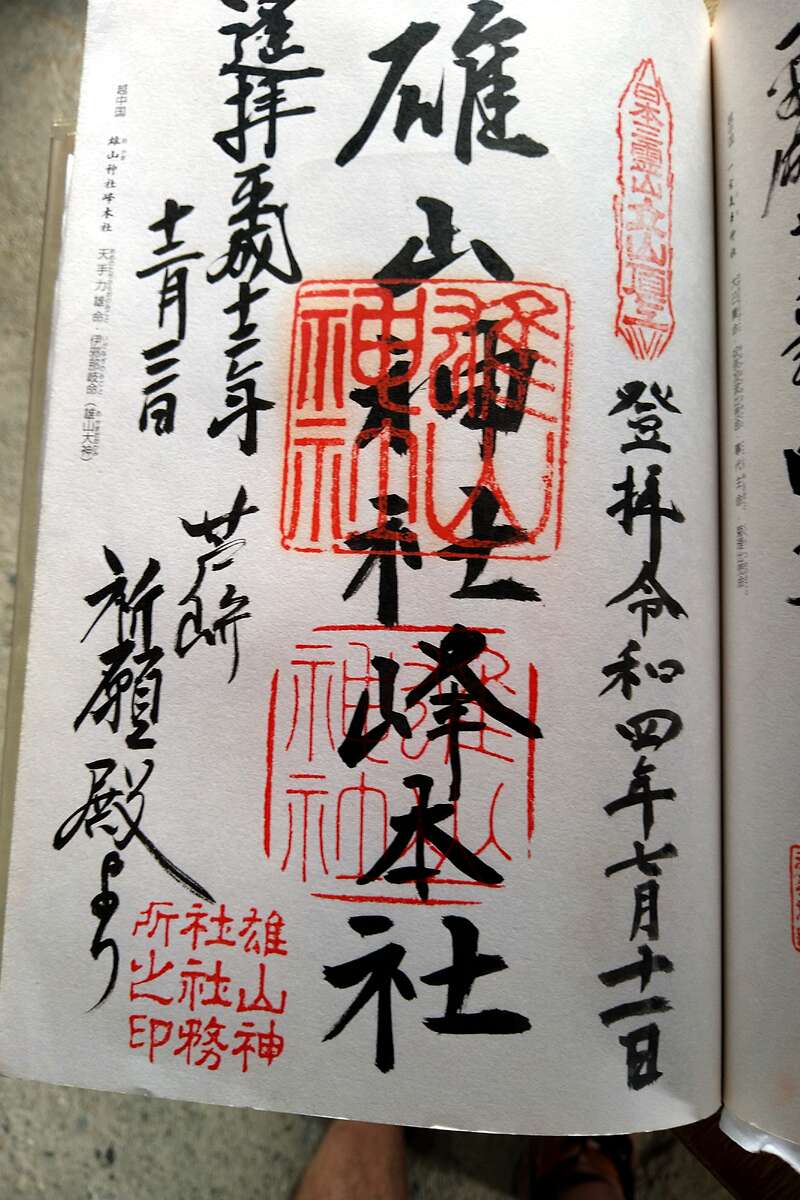 日本三霊山立山頂上
登拝令和四年七月十一日
雄山神社峰本社
雄山
神社
雄山
神社
遥拝平成十二年
十二月
芦峅
祈願殿より
雄山神
社社務
所之印
越中国 雄山神社峰本社 天手力雄命・伊邪那岐命（雄山大神）